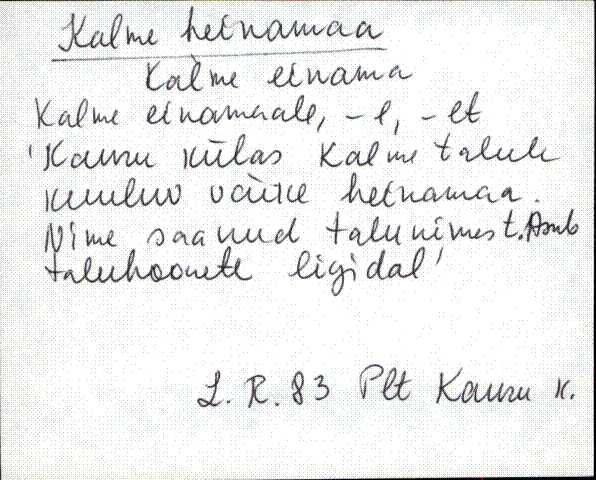 Kalme heinamaa
Kalme einama
Kalme einamaale, -l, -lt
'Kauru külas Kalme talule
kuuluv väike heinamaa.
Nime saanud talunimest. Asub
taluhoonete ligidal'
L. R. 83 Plt Kauru k.